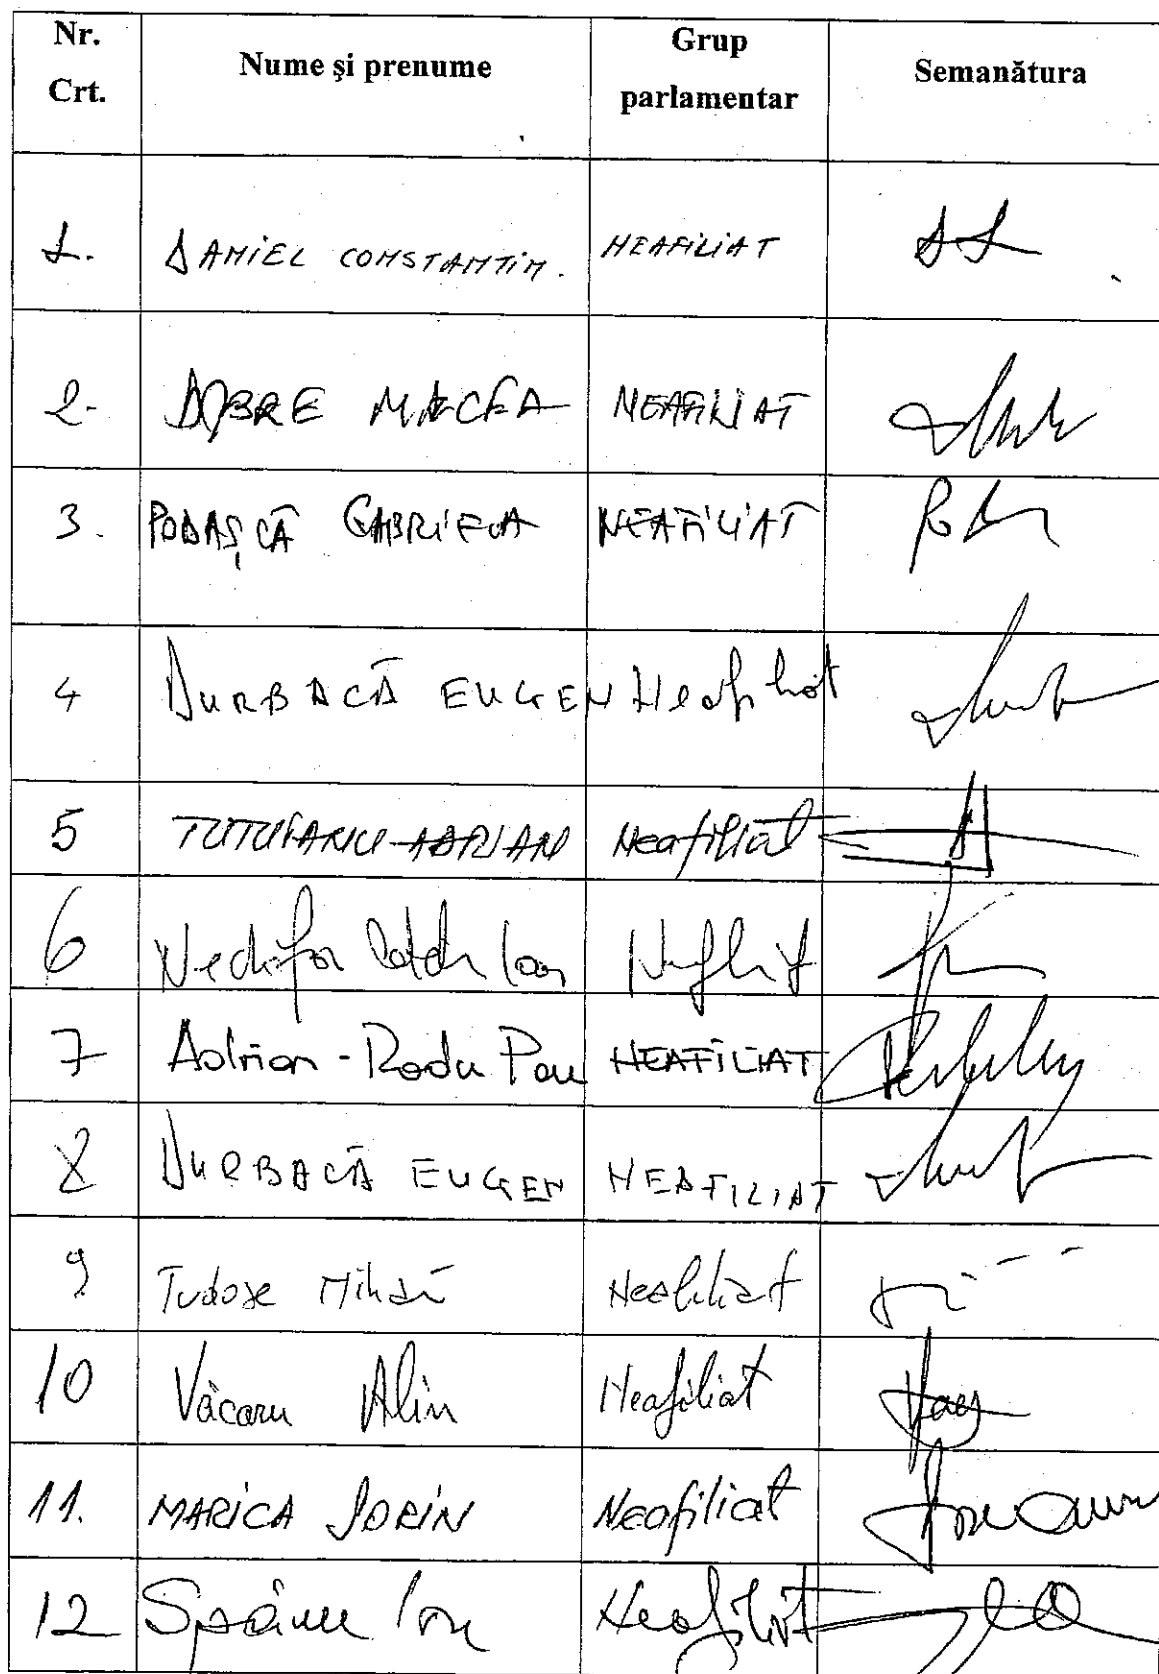 Nr. Crt. Nume şi prenume Grup parlamentar Semanătura
1. DANIEL CONSTANTIN. NEAFILIAT
2. DOBRE MIRCEA NEAFILIAT
3. PODAȘCĂ GABRIELA NEAFILIAT
4 DURBACĂ EUGEN Neafiliat
5 TUTUIANU ADRIAN Neafiliat
6 Nechifor Cătălin Ioan
7 Adrian-Radu Pau NEAFILIAT
8 DURBACĂ EUGEN NEAFILIAT
9 Tudose Mihai Neafiliat
10 Văcaru Alin Neafiliat
11. MARICA SORIN Neafiliat
12 Spânu Ion Neafiliat